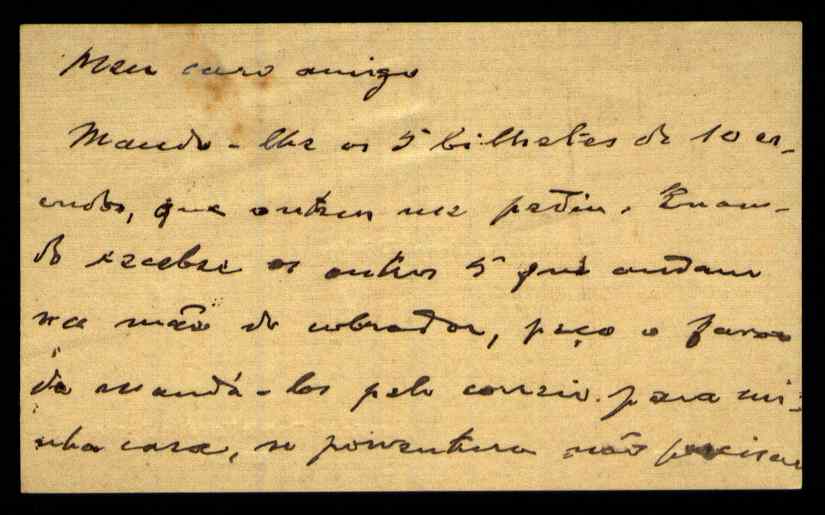 Meu caro amigo
Mando-lhe os 5 bilhetes de 10 es-
cudos, que ontem me pediu. Quan-
do receber os outros 5 que andam
na mão do cobrador, peço o favor
de mandá-los pelo correio para mi-
nha casa, se porventura não precisar